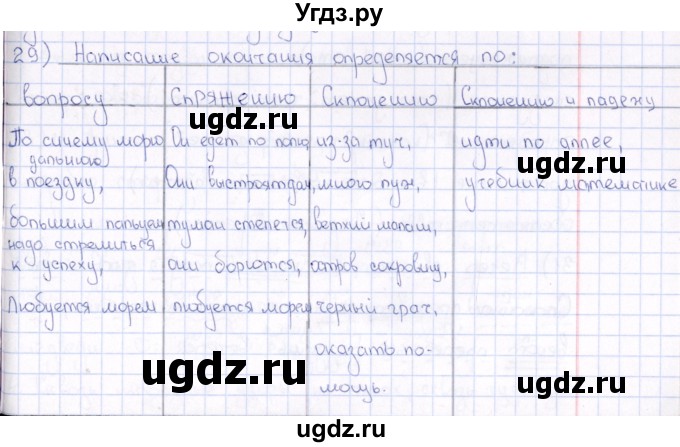 Угдз.ру
29) Написание окончания определяется по:
вопросу Спряжению Склонению Склонению и падежу
По синему морю Он едет по полю из-за туч, идти по аллее,
дальнюю
в поездку, Они выстроят дом, много луж, учебник математике
большим пальцем туман стелется, ветхий шалаш,
надо стремиться
к успеху, они борются, остров сокровищ,
Любуется морем любуется морем черный грач,
оказать по-
мощь.
ugdz.ru
ugdz.ru
ugdz.ru
ugdz.ru
ugdz.ru
ugdz.ru